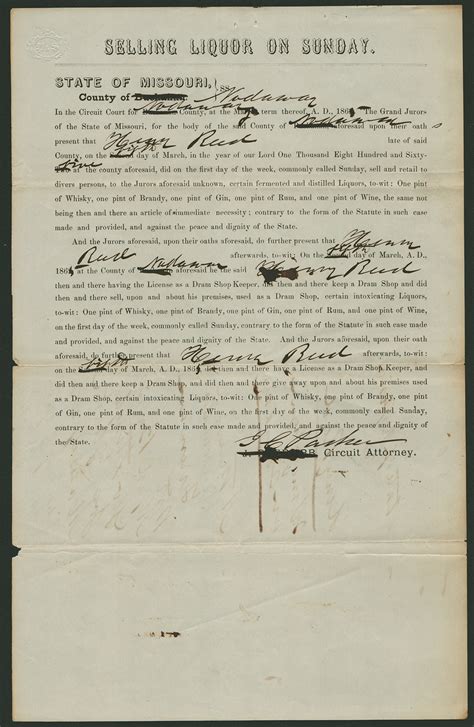 SELLING LIQUOR ON SUNDAY.
STATE OF MISSOURI, } ss.
County of Nodaway
In the Circuit Court for Nodaway County, at the March term thereof, A. D., 186 The Grand Jurors
of the State of Missouri, for the body of the said County of Nodaway aforesaid upon their oaths
present that Henry Reed late of said
County, on the fifth day of March, in the year of our Lord One Thousand Eight Hundred and Sixty-
five at the county aforesaid, did on the first day of the week, commonly called Sunday, sell and retail to
divers persons, to the Jurors aforesaid unknown, certain fermented and distilled Liquors, to-wit: One pint
of Whisky, one pint of Brandy, one pint of Gin, one pint of Rum, and one pint of Wine, the same not
being then and there an article of immediate necessity; contrary to the form of the Statute in such case
made and provided, and against the peace and dignity of the State.
And the Jurors aforesaid, upon their oaths aforesaid, do further present that Henry
Reed afterwards, to-wit: On the day of March, A. D.,
186 at the County of Nodaway aforesaid he the said Henry Reed
then and there having the License as a Dram Shop Keeper, did then and there keep a Dram Shop, and did
then and there sell, upon and about his premises, used as a Dram Shop, certain intoxicating Liquors,
to-wit: One pint of Whisky, one pint of Brandy, one pint of Gin, one pint of Rum, and one pint of Wine,
on the first day of the week, commonly called Sunday, contrary to the form of the Statute in such case made
and provided, and against the peace and dignity of the State. And the Jurors aforesaid, upon their oath
aforesaid, do further present that Henry Reed afterwards, to-wit:
on the fifth day of March, A. D., 186 did then and there have a License as a Dram Shop Keeper, and
did then and there keep a Dram Shop, and did then and there give away upon and about his premises used
as a Dram Shop, certain intoxicating Liquors, to-wit: One pint of Whisky, one pint of Brandy, one pint
of Gin, one pint of Rum, and one pint of Wine, on the first day of the week, commonly called Sunday,
contrary to the form of the Statute in such case made and provided, and against the peace and dignity of
the State.
I C Parker
Circuit Attorney.